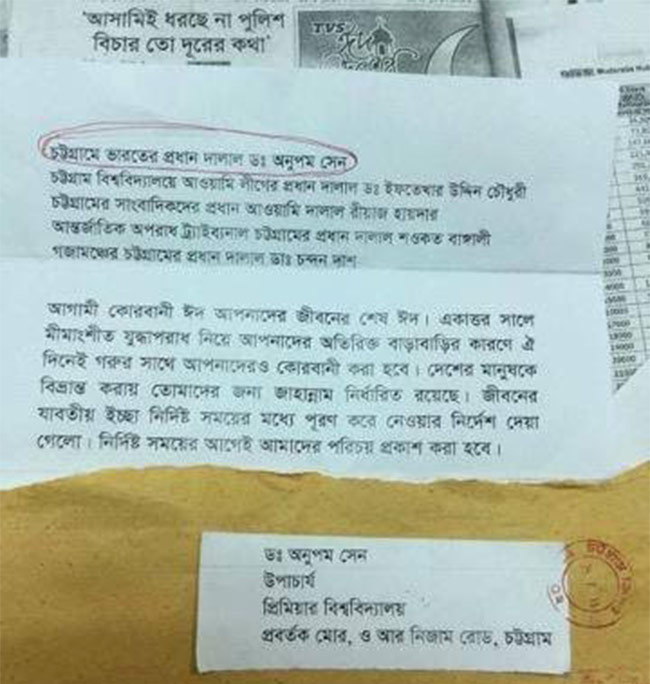 'আসামিই ধরছে না পুলিশ
বিচার তো দূরের কথা'
TVS
ঈদ
চট্টগ্রামে ভারতের প্রধান দালাল ডঃ অনুপম সেন
চট্টগ্রাম বিশ্ববিদ্যালয়ে আওয়ামি লীগের প্রধান দালাল ডঃ ইফতেখার উদ্দিন চৌধুরী
চট্টগ্রামের সাংবাদিকদের প্রধান আওয়ামি দালাল রীয়াজ হায়দার
আন্তর্জাতিক অপরাধ ট্র্যাইব্যনাল চট্টগ্রামের প্রধান দালাল শওকত বাঙ্গালী
গজামঞ্চের চট্টগ্রামের প্রধান দালাল ডাঃ চন্দন দাশ
আগামী কোরবানী ঈদ আপনাদের জীবনের শেষ ঈদ। একাত্তর সালে
মীমাংশীত যুদ্ধাপরাধ নিয়ে আপনাদের অতিরিক্ত বাড়াবাড়ির কারণে ঐ
দিনেই গরুর সাথে আপনাদেরও কোরবানী করা হবে। দেশের মানুষকে
বিভ্রান্ত করায় তোমাদের জন্য জাহান্নাম নির্ধারিত রয়েছে। জীবনের
যাবতীয় ইচ্ছা নির্দিষ্ট সময়ের মধ্যে পূরণ করে নেওয়ার নির্দেশ দেয়া
গেলো। নির্দিষ্ট সময়ের আগেই আমাদের পরিচয় প্রকাশ করা হবে।
ডঃ অনুপম সেন
উপাচার্য
প্রিমিয়ার বিশ্ববিদ্যালয়
প্রবর্তক মোর, ও আর নিজাম রোড, চট্টগ্রাম